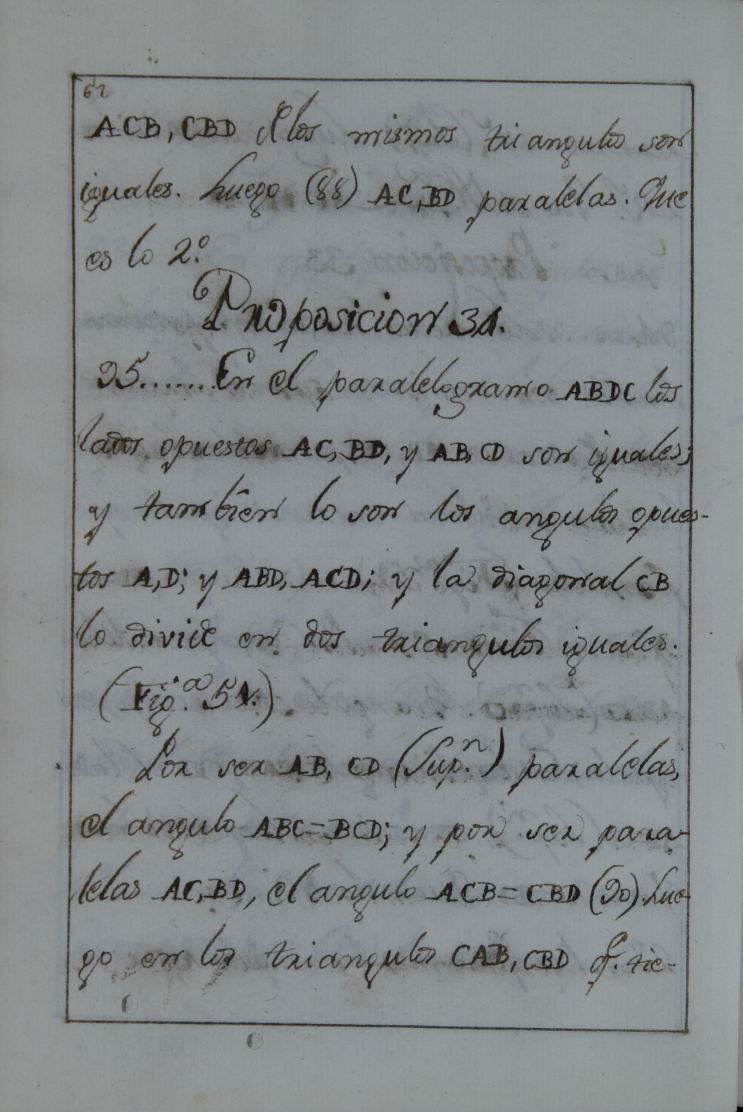 62
ACB, CBD de los mismos triangulos son
iguales. Luego (88) AC, BD paralelas. Que
es lo 2.º
Proposicion 34.
95.......En el paralelogramo ABDC los
lados opuestos AC, BD, y AB, CD son iguales;
y tambien lo son los angulos opues-
tos A, D; y ABD, ACD; y la diagonal CB
lo divide en dos triangulos iguales.
(Fig.ª 54.)
Por ser AB, CD (Sup.n) paralelas,
el angulo ABC=BCD; y por ser para-
lelas AC, BD, el angulo ACB=CBD (90). Lue-
go en los triangulos CAB, CBD q. tie-